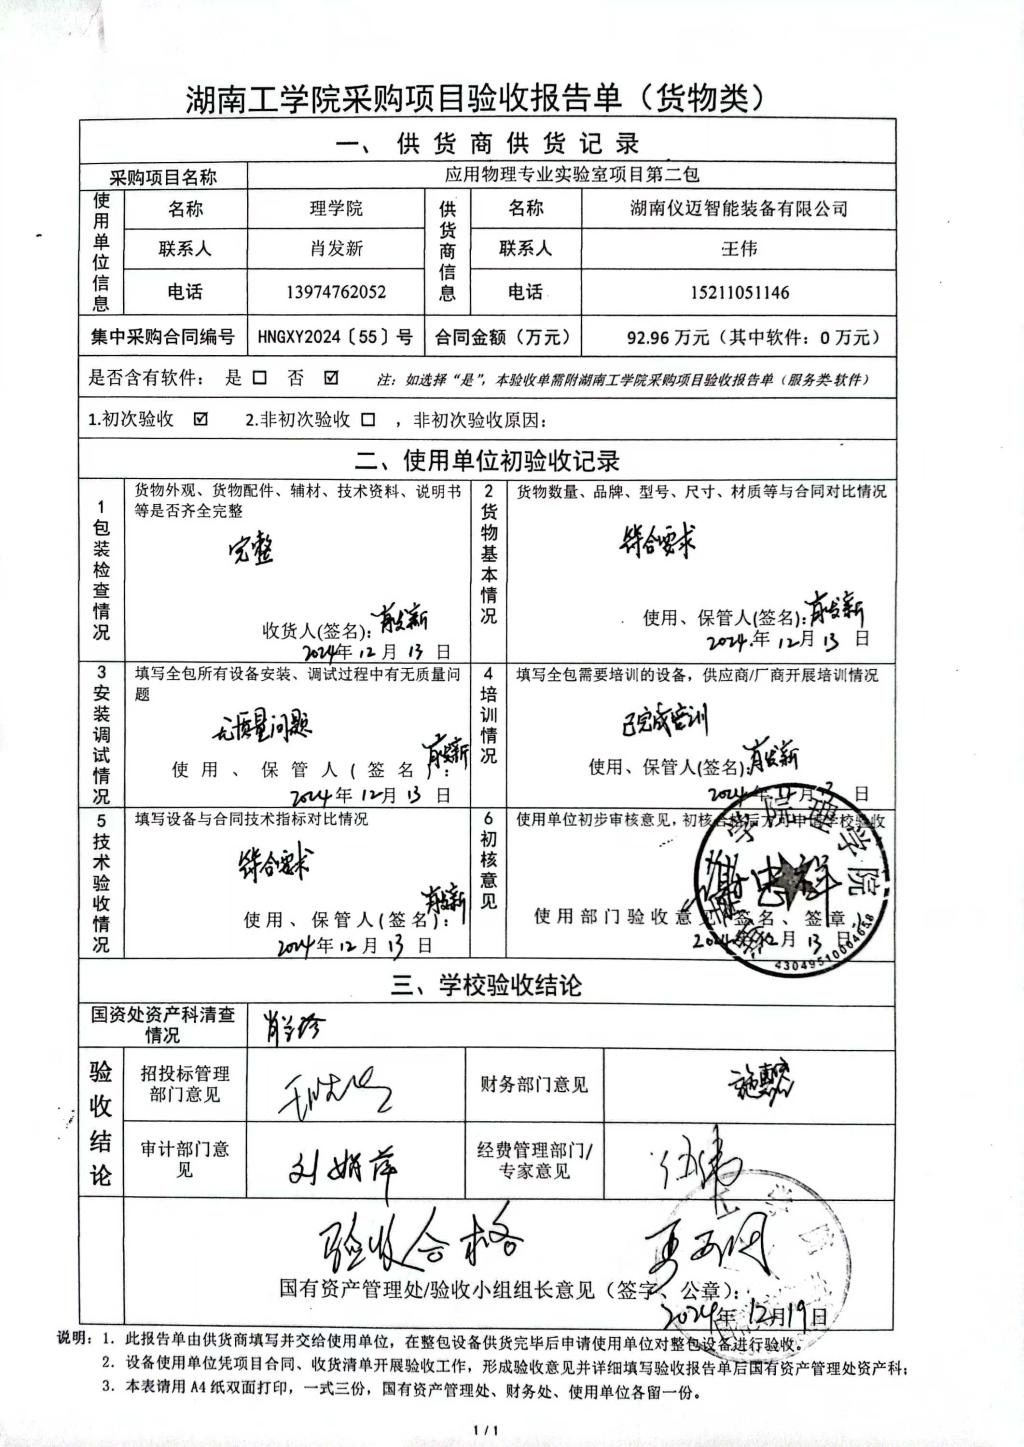 湖南工学院采购项目验收报告单（货物类）
一、供货商供货记录
采购项目名称 应用物理专业实验室项目第二包
使用单位信息 名称 理学院 供货商信息 名称 湖南仪迈智能装备有限公司
联系人 肖发新 联系人 王伟
电话 13974762052 电话 15211051146
集中采购合同编号 HNGXY2024〔55〕号 合同金额（万元） 92.96 万元（其中软件：0 万元）
是否含有软件： 是 ☐ 否 ☑ 注：如选择“是”，本验收单需附湖南工学院采购项目验收报告单（服务类-软件）
1.初次验收 ☑ 2.非初次验收 ☐ ，非初次验收原因：
二、使用单位初验收记录
1 包装检查情况
货物外观、货物配件、辅材、技术资料、说明书
等是否齐全完整
完整
收货人(签名)：肖发新
2024年 12 月 13 日
2 货物基本情况
货物数量、品牌、型号、尺寸、材质等与合同对比情况
符合要求
使用、保管人(签名)：肖发新
2024.年 12 月 13 日
3 安装调试情况
填写全包所有设备安装、调试过程中有无质量问
题
无质量问题
使用、保管人(签名)：肖发新
2024年 12月 13 日
4 培训情况
填写全包需要培训的设备，供应商/厂商开展培训情况
已完成培训
使用、保管人(签名)：肖发新
2024年 月 日
5 技术验收情况
填写设备与合同技术指标对比情况
符合要求
使用、保管人(签名)：肖发新
2024年 12 月 13 日
6 初核意见
使用单位初步审核意见，初核合格后方可申请学校验收
使用部门验收意见（签名、签章）
2024年12月 13 日
学院理学院
43049510004658
三、学校验收结论
国资处资产科清查
情况
验收结论
招投标管理
部门意见
财务部门意见
审计部门意
见
刘娟萍
经费管理部门/
专家意见
伍伟
验收合格
国有资产管理处/验收小组组长意见（签字、公章）：
2024年12月19日
说明：1. 此报告单由供货商填写并交给使用单位，在整包设备供货完毕后申请使用单位对整包设备进行验收。
2. 设备使用单位凭项目合同、收货清单开展验收工作，形成验收意见并详细填写验收报告单后国有资产管理处资产科；
3. 本表请用 A4 纸双面打印，一式三份，国有资产管理处、财务处、使用单位各留一份。
1 / 1